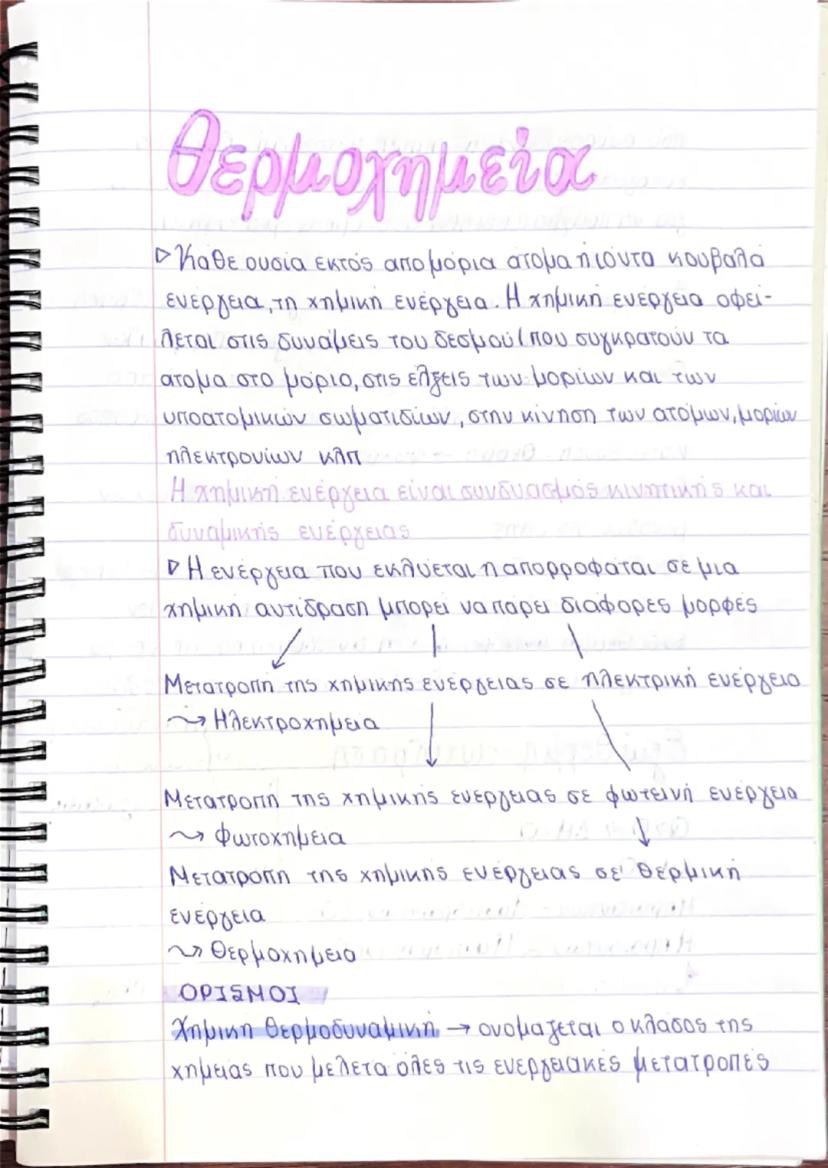 Θερμοχημεία
▷ Κάθε ουσία εκτός απο μόρια ατομα ή ιόντα κουβαλά
ενέργεια, τη χημική ενέργεια. Η χημική ενέργεια οφεί-
λεται στις δυνάμεις του δεσμού (που συγκρατούν τα
ατομα στο μόριο, στις έλξεις των μορίων και των
υποατομικών σωματιδίων, στην κίνηση των ατόμων, μορίων
ηλεκτρονίων κλπ
Η χημική ενέργεια είναι συνδυασμός κινητικής και
δυναμικής ενέργειας
▷ Η ενέργεια που εκλύεται η απορροφάται σε μια
χημική αντίδραση μπορεί να πάρει διάφορες μορφές
Μετατροπή της χημικής ενέργειας σε ηλεκτρική ενέργεια
⤳ Ηλεκτροχημεια
Μετατροπή της χημικής ενέργειας σε φωτεινή ενέργεια
⤳ Φωτοχημεια
Μετατροπή της χημικής ενέργειας σε θερμική
ενέργεια
⤳ Θερμοχημεια
ΟΡΙΣΜΟΙ
Χημική Θερμοδυναμική → ονομαζεται ο κλαδος της
χημειας που μελετα όλες τις ενεργειακές μετατροπές